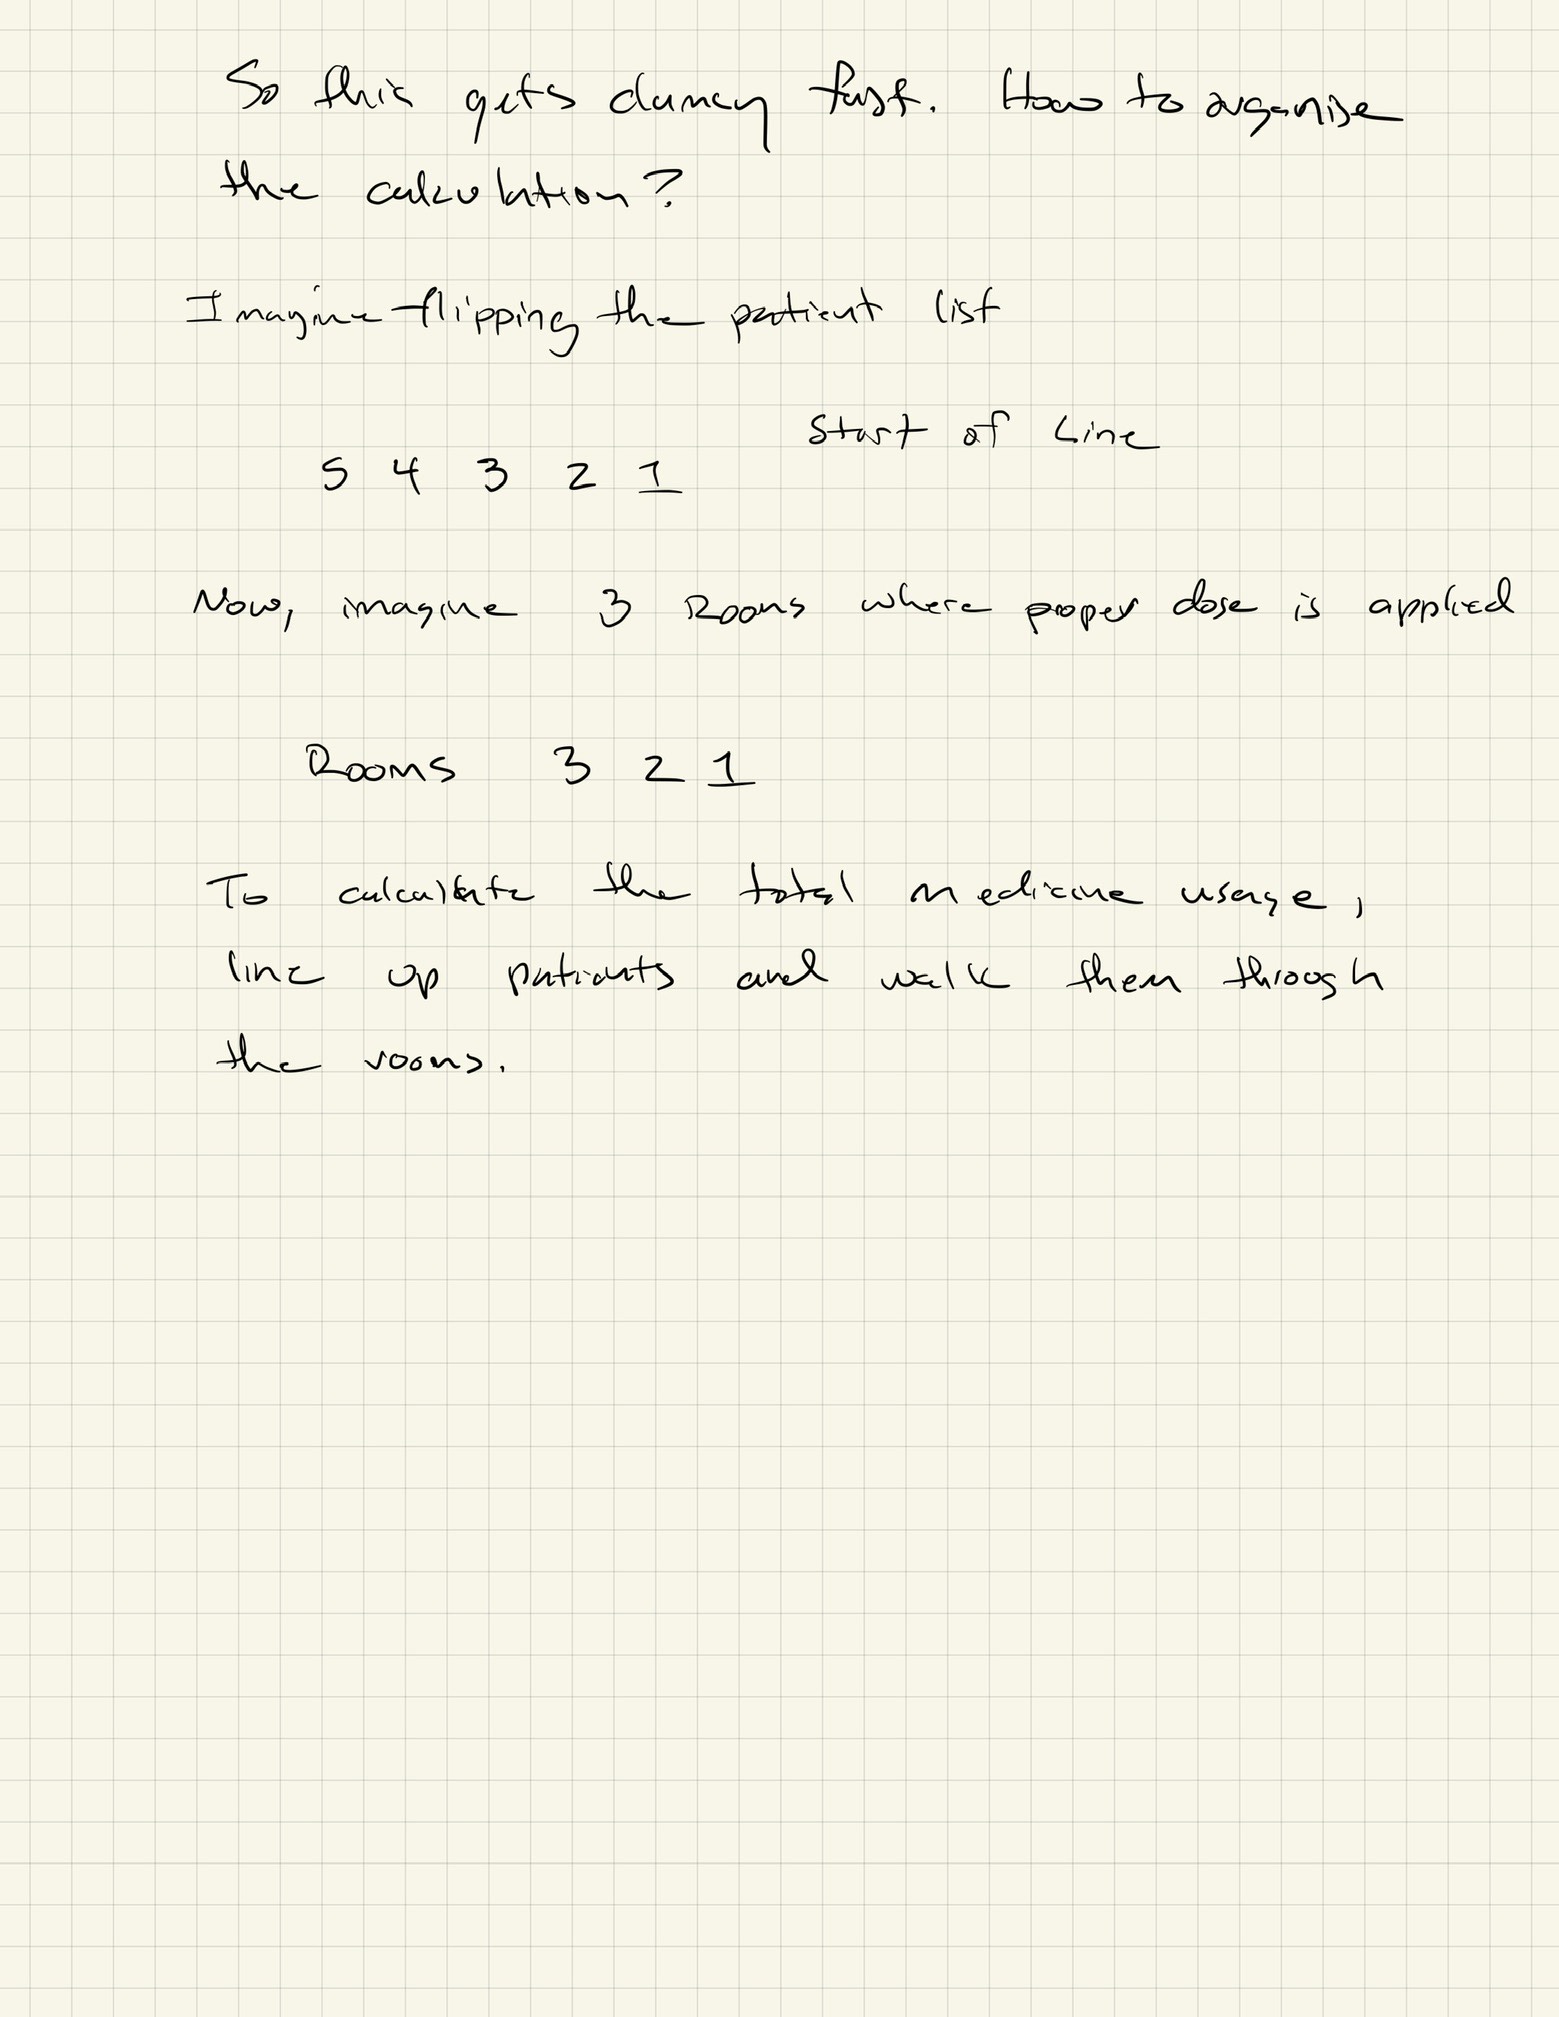 So this gets clumsy fast. How to organise
the calculation?
Imagine flipping the patient list
Start of Line
5 4 3 2 1
Now, imagine 3 Rooms where proper dose is applied
Rooms 3 2 1
To calculate the total medicine usage,
line up patients and walk them through
the rooms.